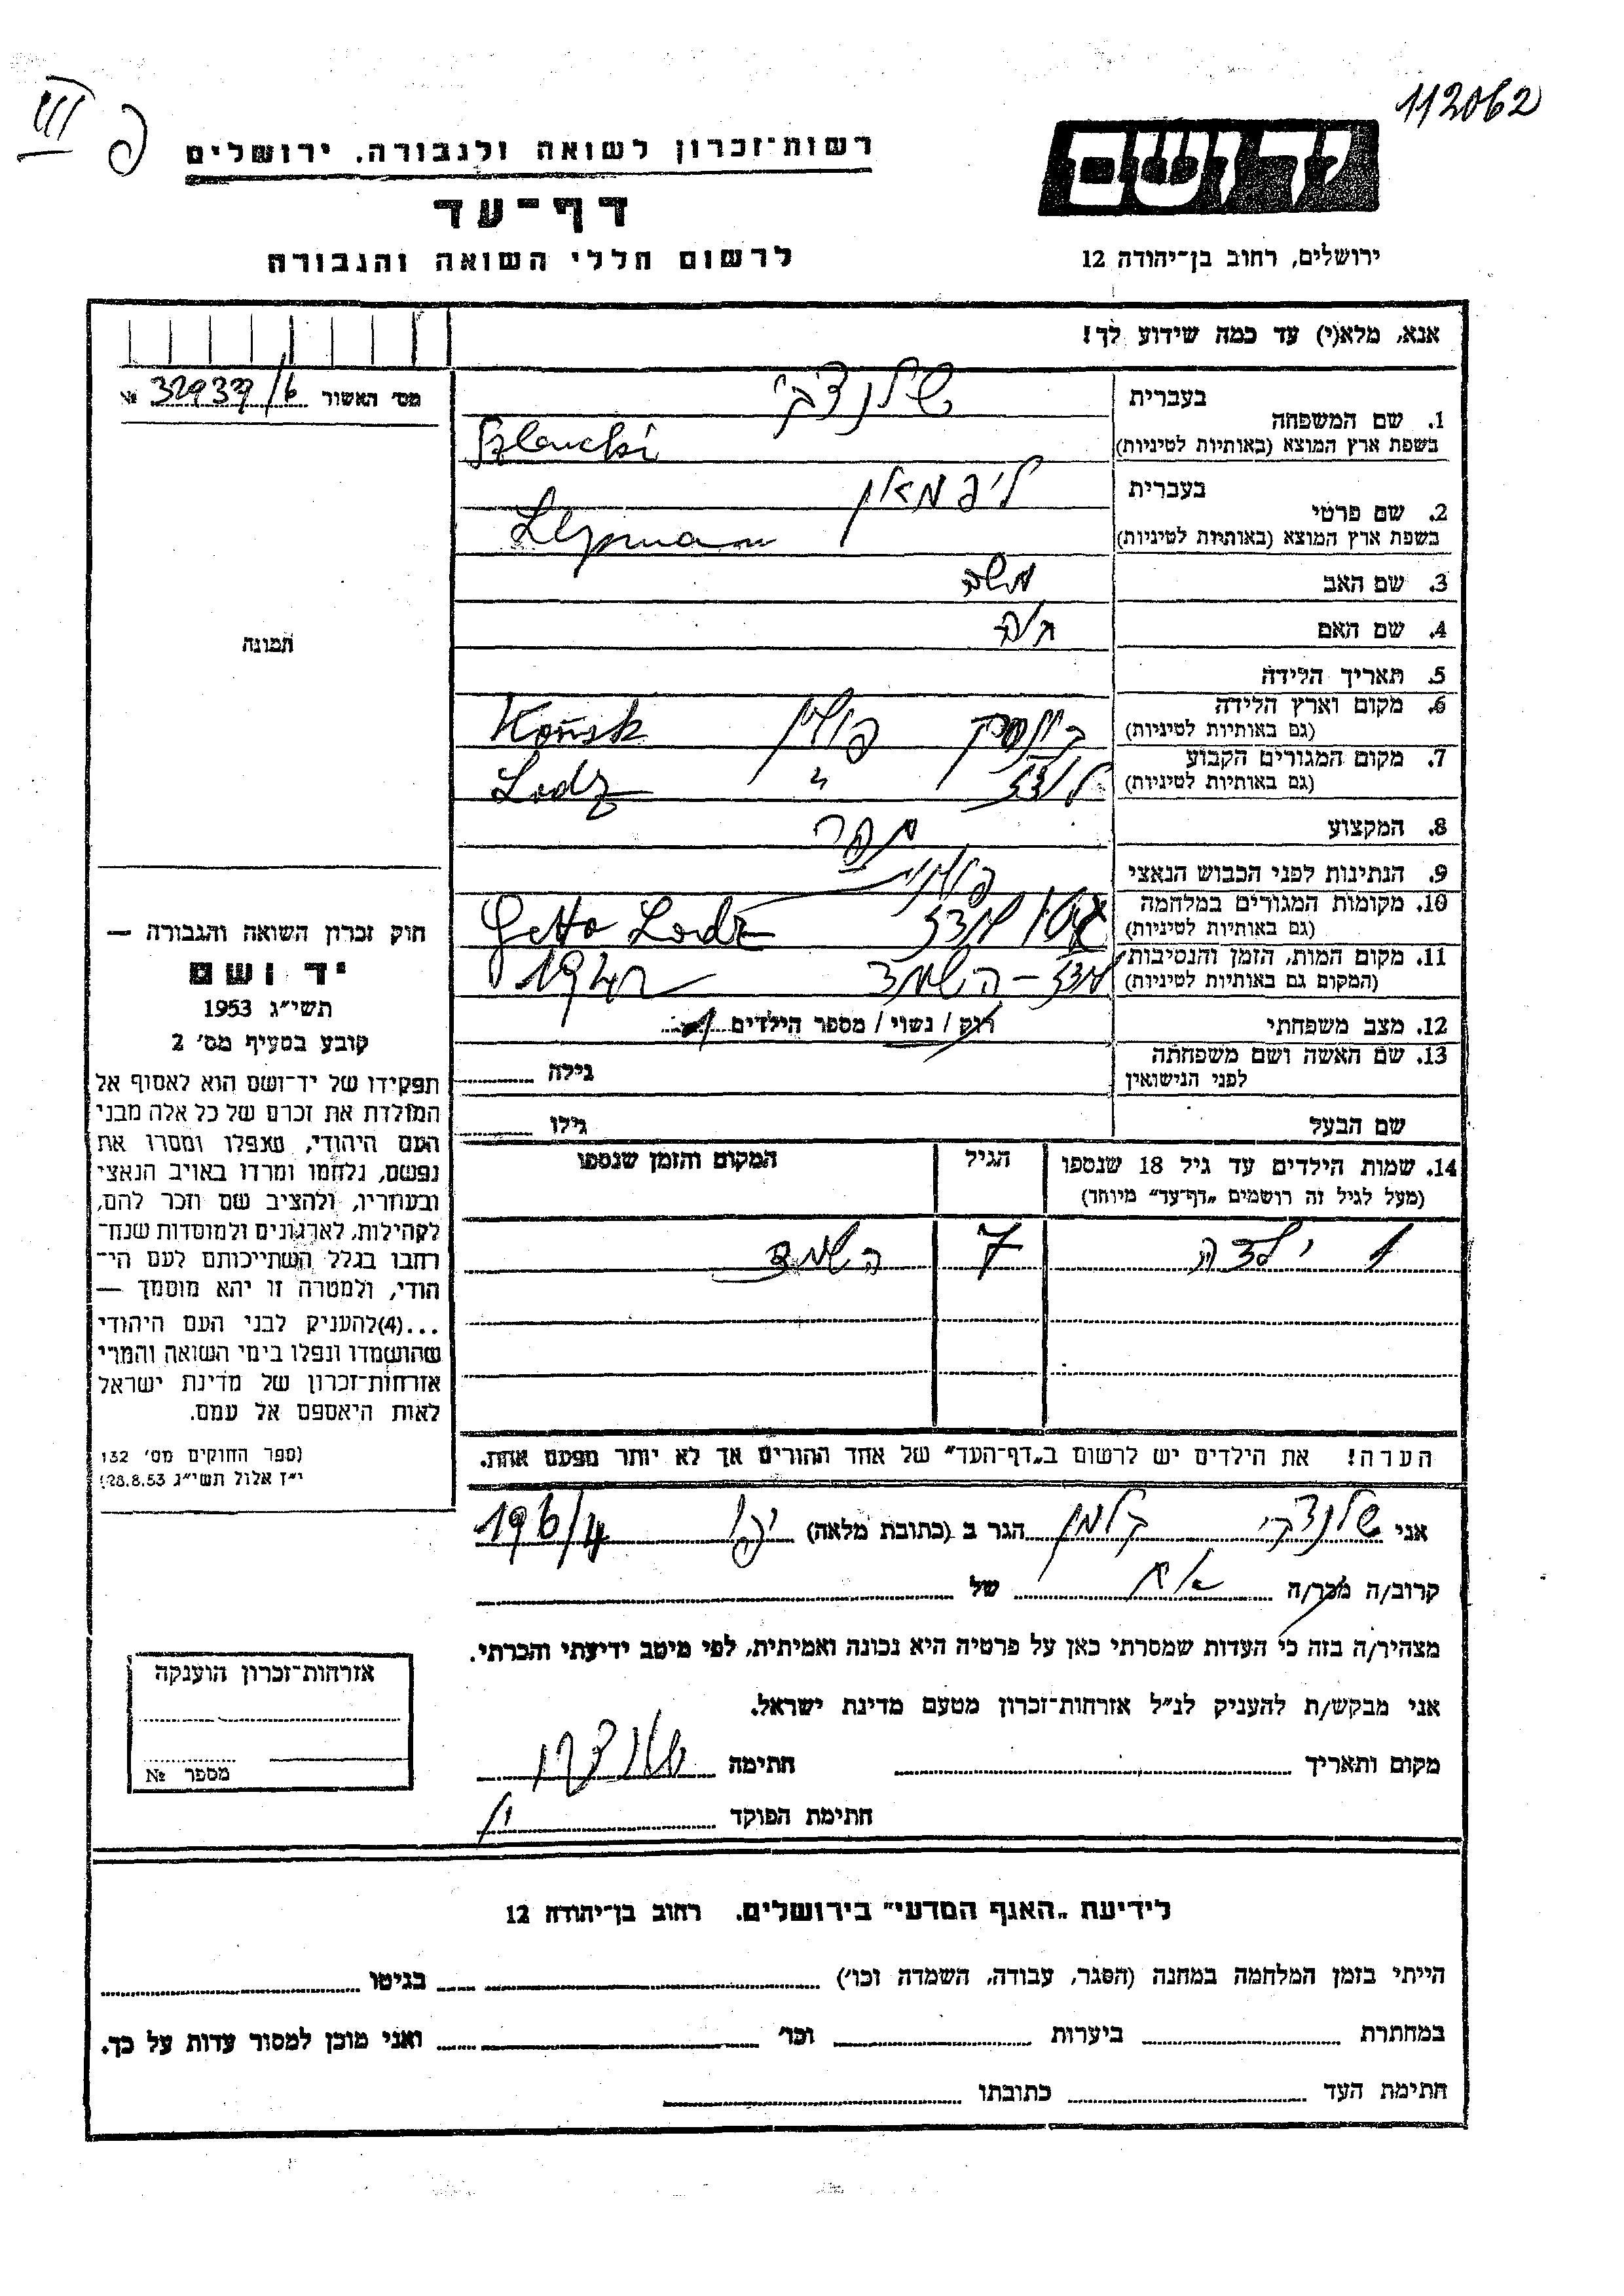 112062
III
פ
יד ושם
רשות־זכרון לשואה ולגבורה. ירושלים
דף־עד
ירושלים, רחוב בן־יהודה 12
לרשום חללי השואה והגבורה
אנא, מלא(י) עד כמה שידוע לך!
מס׳ האשור 32937/6 №
תמונה
בעברית
שלנדקי
1. שם המשפחה
בשפת ארץ המוצא (באותיות לטיניות)
Szlancki
בעברית
ליפמאן
2. שם פרטי
בשפת ארץ המוצא (באותיות לטיניות)
Lipman
3. שם האב משה
4. שם האם חיה
5. תאריך הלידה
6. מקום וארץ הלידה
(גם באותיות לטיניות)
פולין Końsk
7. מקום המגורים הקבוע
(גם באותיות לטיניות)
לודז " Lodz
8. המקצוע
9. הנתינות לפני הכבוש הנאצי פולנית
10. מקומות המגורים במלחמה
(גם באותיות לטיניות)
גטו לודז Getto Lodz
11. מקום המות, הזמן והנסיבות
(המקום גם באותיות לטיניות)
לודז – השמד
12. מצב משפחתי רוק / נשוי / מספר הילדים 1
13. שם האשה ושם משפחתה
לפני הנישואין
גילה
שם הבעל גילו
14. שמות הילדים עד גיל 18 שנספו
(מעל לגיל זה רושמים „דף־עד״ מיוחד)
הגיל
המקום והזמן שנספו
1 ילדה 7 השמד
הערה! את הילדים יש לרשום ב„דף־העד״ של אחד ההורים אך לא יותר מפעם אחת.
חוק זכרון השואה והגבורה —
יד ושם
תשי״ג 1953
קובע בסעיף מס׳ 2
תפקידו של יד־ושם הוא לאסוף אל
המולדת את זכרם של כל אלה מבני
העם היהודי, שנפלו ומסרו את
נפשם, נלחמו ומרדו באויב הנאצי
ובעוזריו, ולהציב שם וזכר להם,
לקהילות, לארגונים ולמוסדות שנח־
רחבו בגלל השתייכותם לעם הי־
הודי, ולמטרה זו יהא מוסמך —
...(4)להעניק לבני העם היהודי
שהושמדו ונפלו בימי השואה והמרי
אזרחות־זכרון של מדינת ישראל
לאות היאספם אל עמם.
(ספר החוקים מס׳ 132
י״ז אלול תשי״ג 28.8.53)
אני שלנדקי קלמן הגר ב (כתובת מלאה) יפו 196/4
קרוב/ה מכר/ה אח של
מצהיר/ה בזה כי העדות שמסרתי כאן על פרטיה היא נכונה ואמיתית, לפי מיטב ידיעתי והכרתי.
אני מבקש/ת להעניק לנ״ל אזרחות־זכרון מטעם מדינת ישראל.
מקום ותאריך חתימה
חתימת הפוקד
אזרחות־זכרון הוענקה
מספר №
לידיעת „האגף המדעי״ בירושלים. רחוב בן־יהודה 12
הייתי בזמן המלחמה במחנה (הסגר, עבודה, השמדה וכו׳) בגיטו
במחתרת ביערות וכו׳ ואני מוכן למסור עדות על כך.
חתימת העד כתובתו